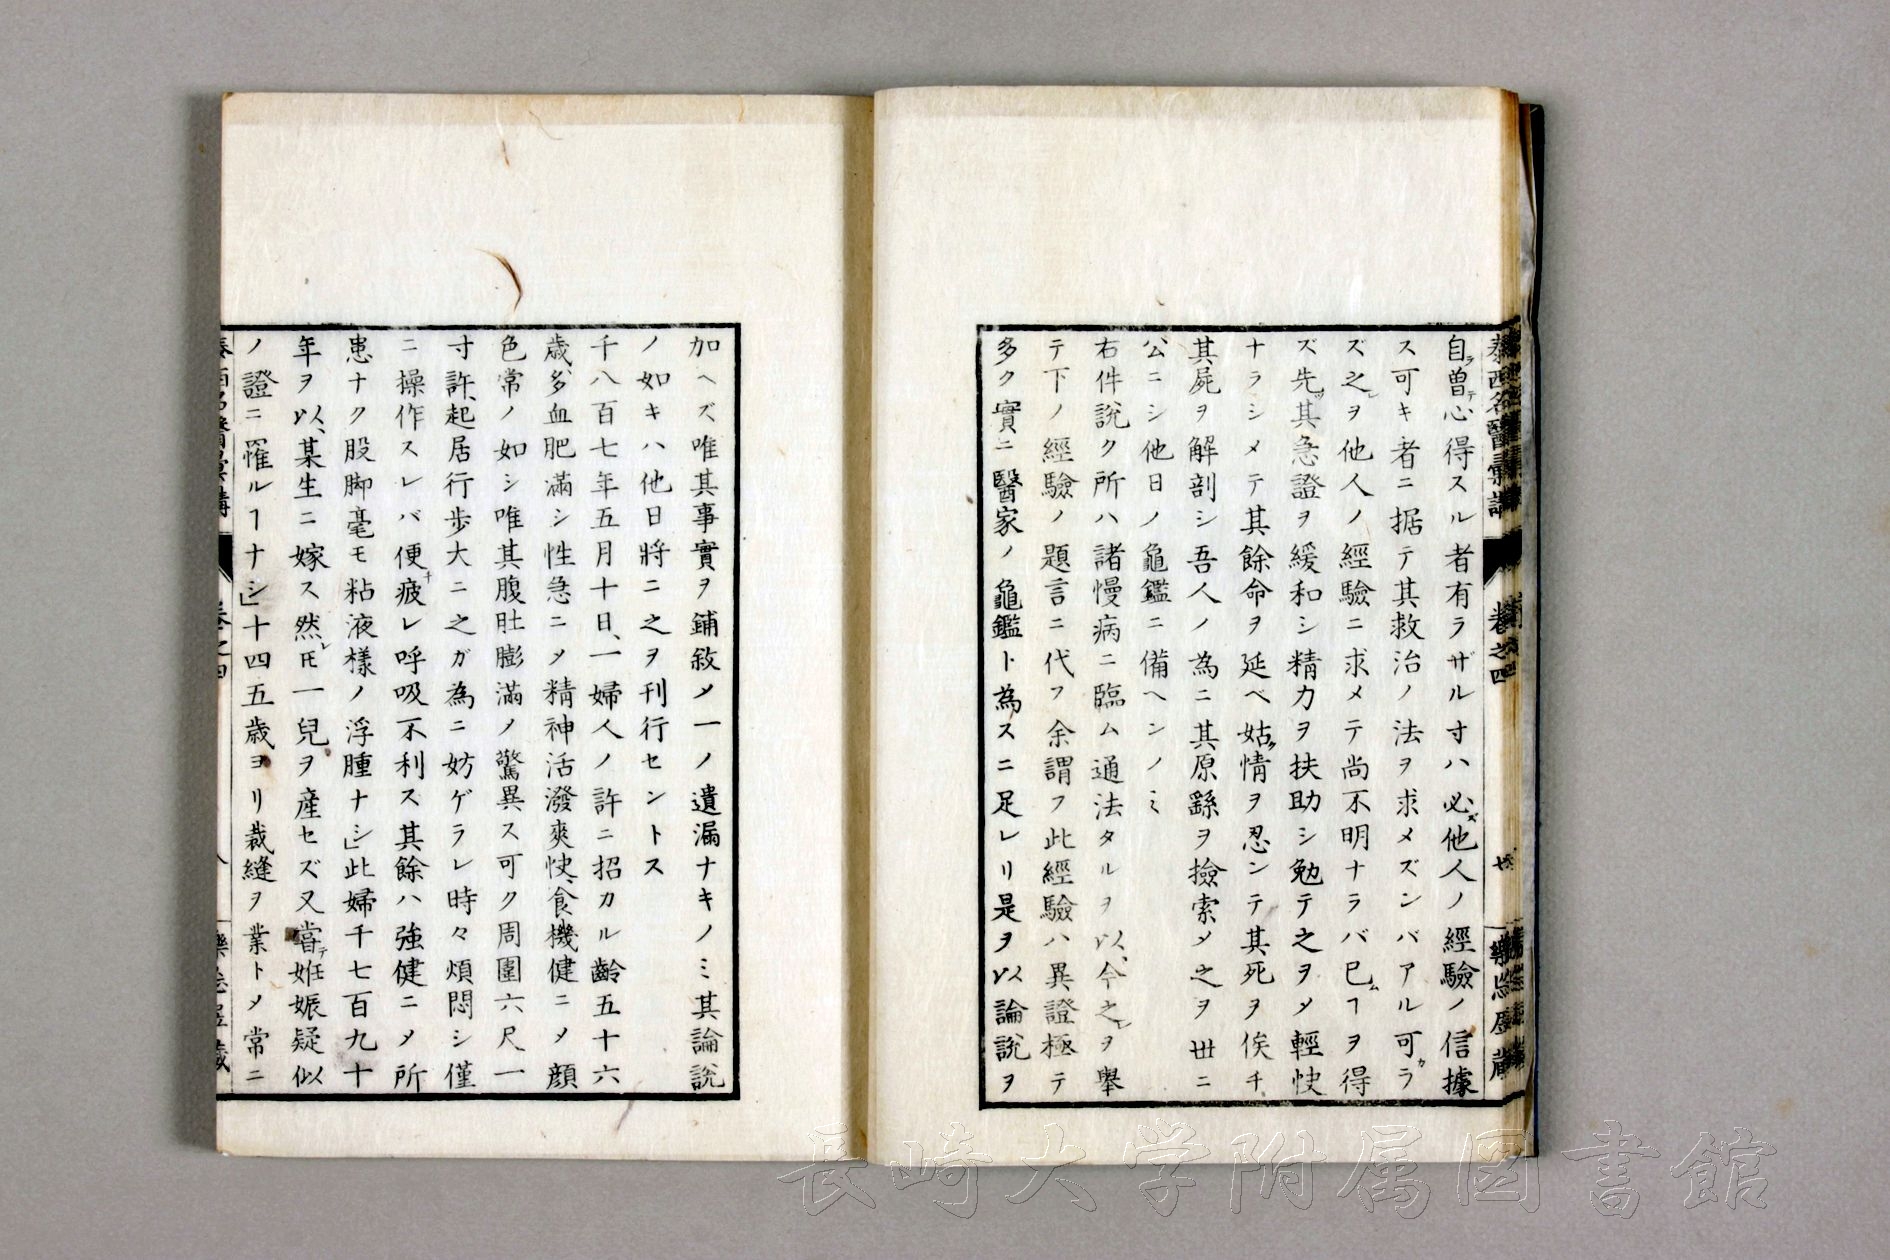 泰西名醫彙講 卷之四
自ラ曽テ心得スル者有ラザル寸ハ必ズ他人ノ經驗ノ信據
ス可キ者ニ据テ其救治ノ法ヲ求メズンバアル可カラ
ズ之レヲ他人ノ經驗ニ求メテ尚不明ナラバ已ムヿヲ得
ズ先ヅ其急證ヲ緩和シ精力ヲ扶助シ勉テ之ヲメ輕快
ナラシメテ其餘命ヲ延ベ姑ク情ヲ忍ンテ其死ヲ俟チ
其屍ヲ解剖シ吾人ノ為ニ其原繇ヲ撿索メ之ヲ世ニ
公ニシ他日ノ龜鑑ニ備ヘンノミ
右件說ク所ハ諸慢病ニ臨ム通法タルヲ以、今之レヲ舉
テ下ノ經驗ノ題言ニ代フ余謂フ此經驗ハ異證極テ
多ク實ニ醫家ノ龜鑑ト為スニ足レリ是ヲ以論說ヲ
加ヘズ唯其事實ヲ鋪敘メ一ノ遺漏ナキノミ其論說
ノ如キハ他日將ニ之ヲ刊行セントス
千八百七年五月十日、一婦人ノ許ニ招カル齡五十六
歳、多血肥滿シ性急ニメ精神活潑爽快、食機健ニメ顔
色常ノ如シ唯其腹肚膨滿ノ驚異ス可ク周圍六尺、一
寸許、起居行歩大ニ之ガ為ニ妨ゲラレ時々煩悶シ僅
ニ操作スレバ便チ疲レ呼吸不利ス其餘ハ強健ニメ所
患ナク股脚毫モ粘液樣ノ浮腫ナシ」此婦千七百九十
年ヲ以、某生ニ嫁ス然レ𪜈一兒ヲ産セズ又嘗テ姙娠疑似
ノ證ニ罹ルヿナシ」十四五歳ヨリ裁縫ヲ業トメ常ニ
長崎大学附属図書館